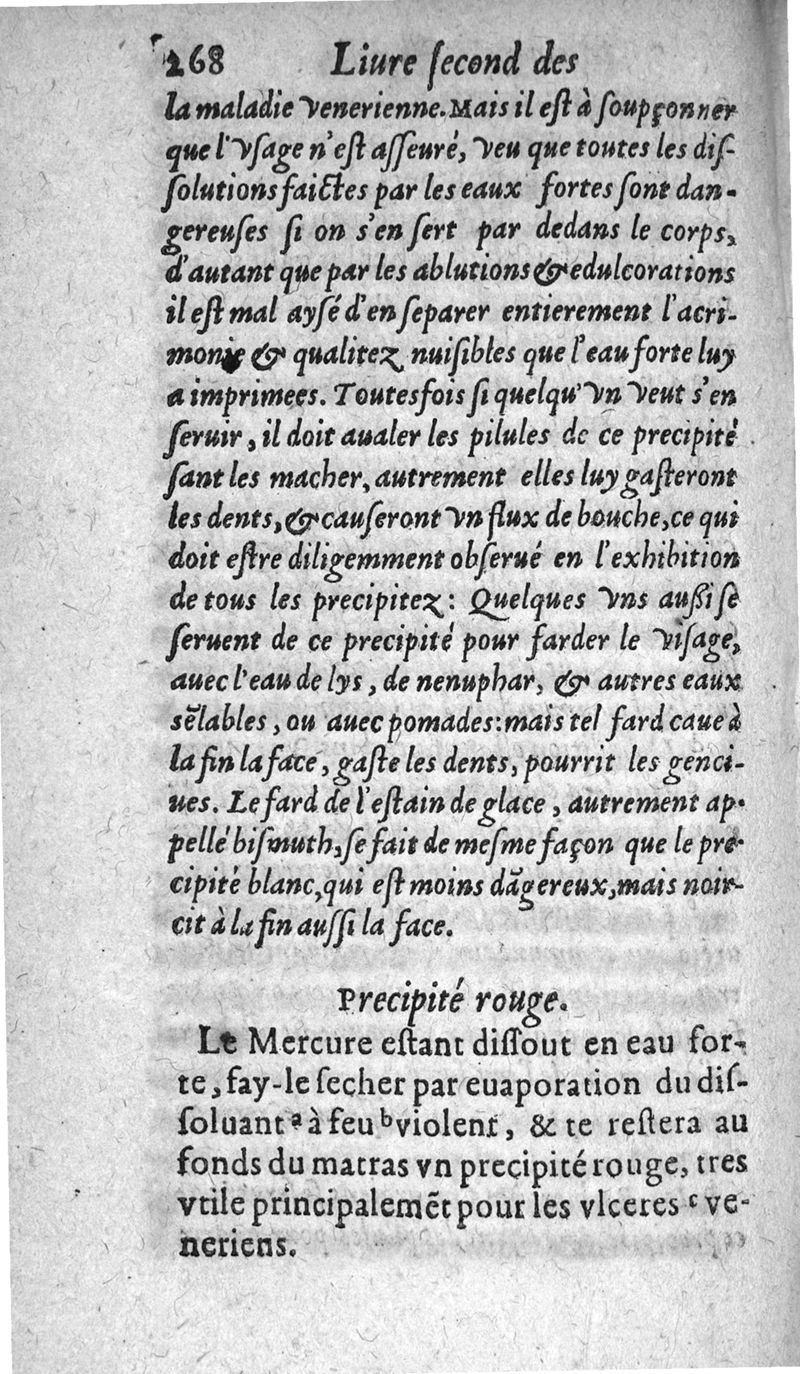 268 Liure ſecond des
la maladie venerienne. Mais il eſt à ſoupçonner
que l'vſage n'eſt aſſeuré, veu que toutes les diſ-
ſolutions faictes par les eaux fortes ſont dan-
gereuſes ſi on s'en ſert par dedans le corps,
d'autant que par les ablutions & edulcorations
il eſt mal ayſé d'en ſeparer entierement l'acri-
monie & qualitez nuiſibles que l'eau forte luy
a imprimees. Toutesfois ſi quelqu'vn veut s'en
ſeruir, il doit aualer les pilules de ce precipité
ſant les macher, autrement elles luy gaſteront
les dents, & cauſeront vn flux de bouche, ce qui
doit eſtre diligemment obſerué en l'exhibition
de tous les precipitez: Quelques vns auſſi ſe
ſeruent de ce precipité pour farder le viſage,
auec l'eau de lys, de nenuphar, & autres eaux
sẽlables, ou auec pomades: mais tel fard caue à
la fin la face, gaſte les dents, pourrit les genci-
ues. Le fard de l'eſtain de glace, autrement ap-
pellé biſmuth, ſe fait de meſme façon que le pre-
cipité blanc, qui eſt moins dãgereux, mais noir-
cit à la fin auſſi la face.
Precipité rouge.
Le Mercure eſtant diſſout en eau for-
te, fay-le ſecher par euaporation du diſ-
ſoluant ᵃ à feu ᵇ violent, & te reſtera au
fonds du matras vn precipité rouge, tres
vtile principalemẽt pour les vlceres ᶜ ve-
neriens.